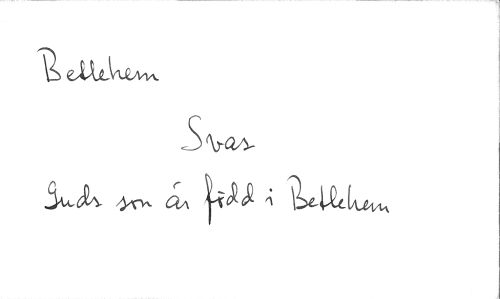 Betlehem
Svar
Guds son är född i Betlehem